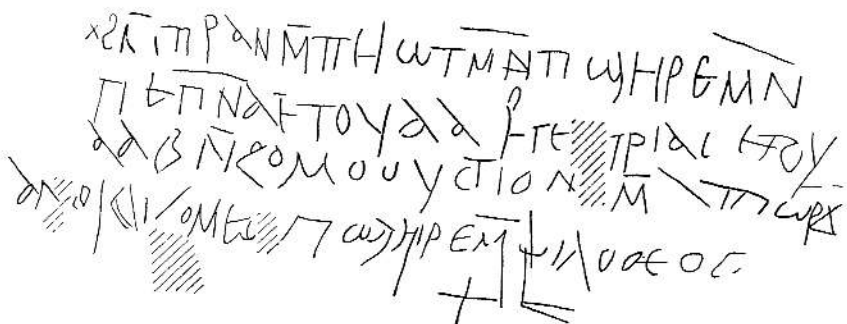 ϩⲛ̄ ⲡⲣⲁⲛ ⲙ̄ⲡⲏⲱⲧ ⲙⲛ̄ ⲡϣⲏⲣⲉ ⲙⲛ̄
ⲡⲉⲡⲛ̄ⲁ ⲉⲧⲟⲩⲁⲁⲃ ⲧⲉⲧⲣⲓⲁⲥ ⲉⲧⲟⲩ
ⲁⲁⲃ ⲛ̄ϩⲟⲙⲟⲩⲩⲥⲧⲓⲟⲛ ⲙ̄ ⲁⲧⲡⲱⲣϫ
ⲁⲛⲟⲕ ⲡϣⲏⲣⲉ ⲙ̄ⲫⲓⲗⲟⲑⲉⲟⲥ